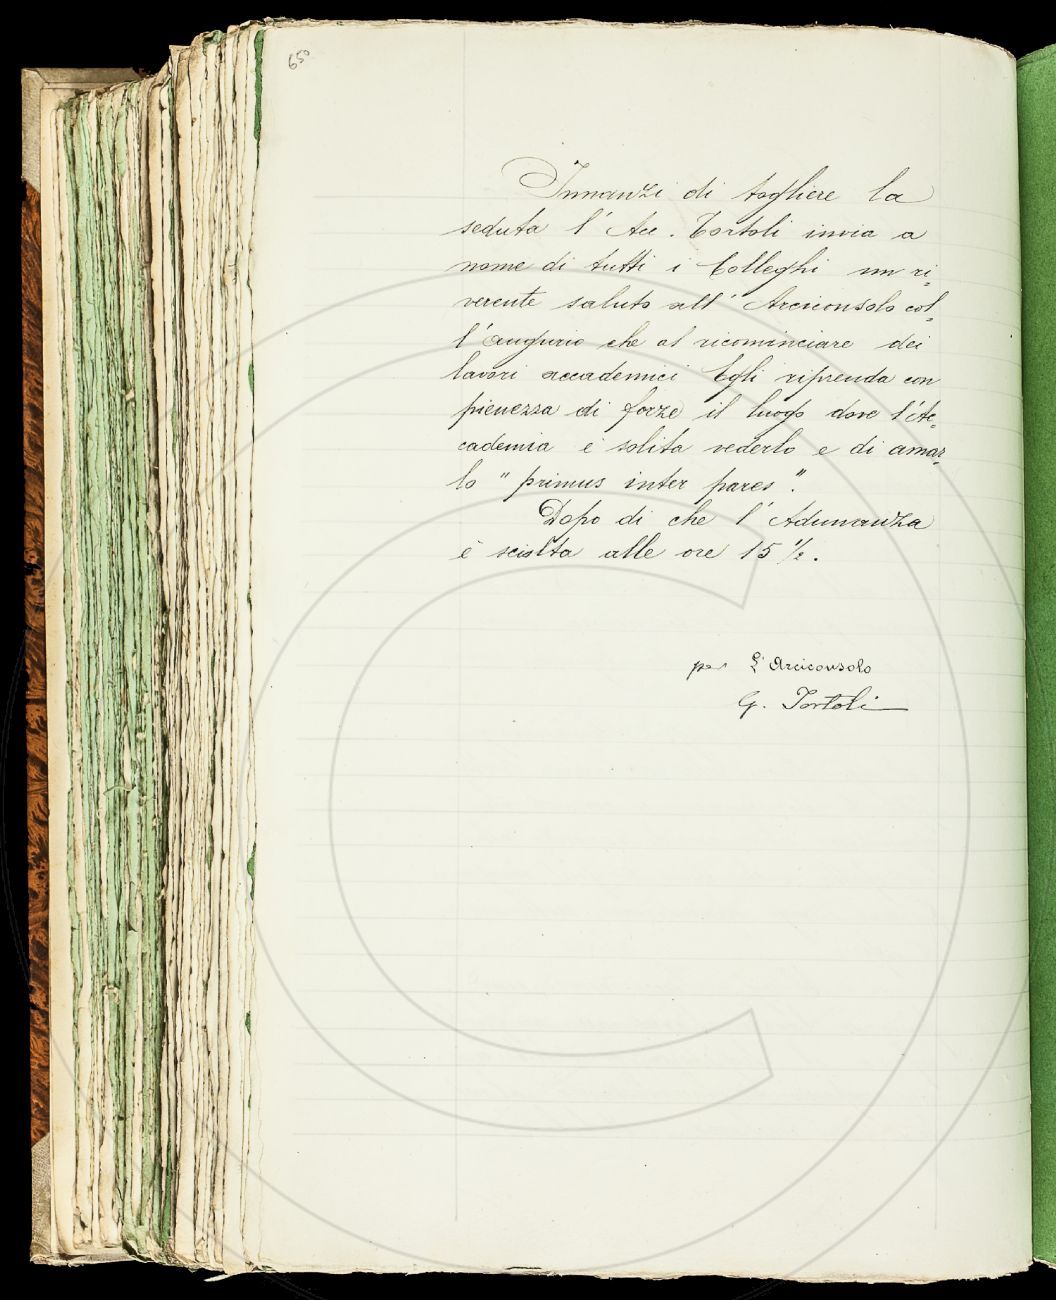 650
Innanzi di togliere la
seduta l'Acc. Tortoli invia a
nome di tutti i Colleghi un ri=
verente saluto all'Arciconsolo col=
l'augurio che al ricominciare dei
lavori accademici Egli riprenda con
pienezza di forze il luogo dove l'Ac=
cademia è solita vederlo e di amar=
lo "primus inter pares".
Dopo di che l'Adunanza
è sciolta alle ore 15 1/2.
per L'Arciconsolo
G. Tortoli